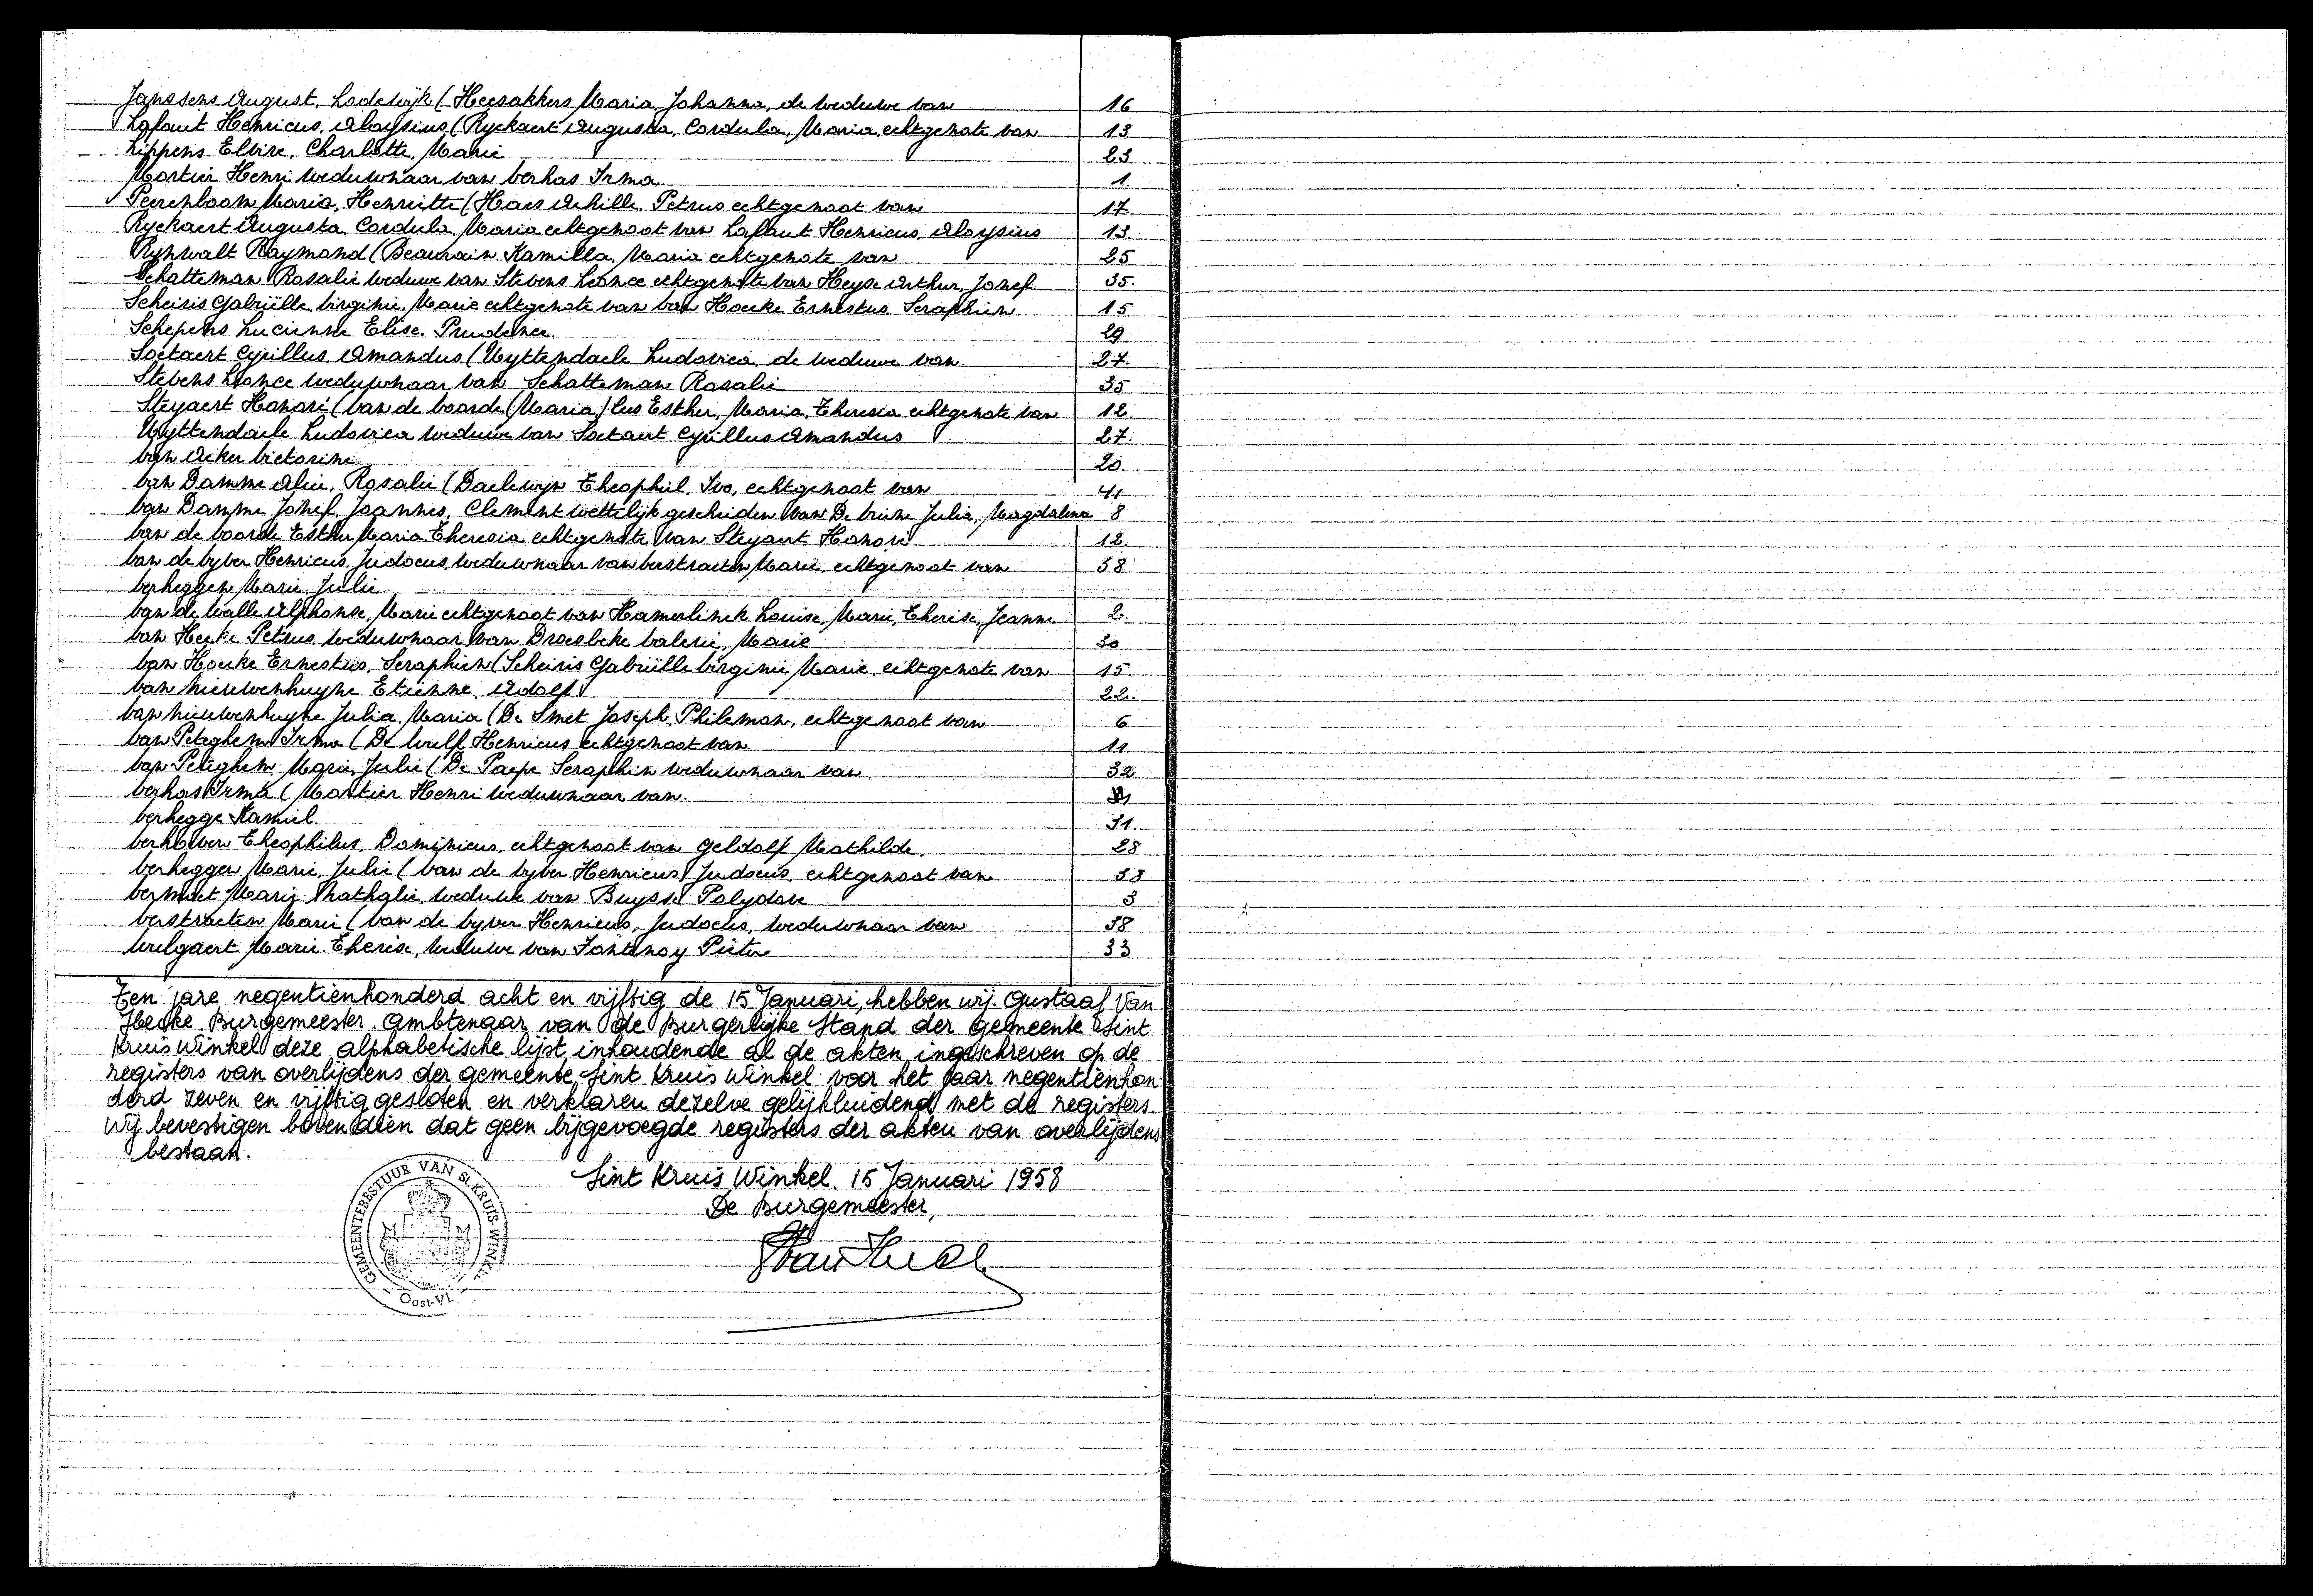 Janssens August, Lodewijk (Heesakkers Maria, Johanna, de weduwe van 16
Lafaut Henricus, Aloysius (Ryckaert Augusta, Cordula, Maria, echtgenote van 13
Lippens Elvire, Charlotte, Marie 23
Mortier Henri weduwnaar van Verhas Irma 1.
Peerenboom Maria, Henriette (Haes Achille, Petrus echtgenoot van 17
Ryckaert Augusta, Cordula, Maria echtgenoot van Lafaut Henricus, Aloysius 13.
Rynwalt Raymond (Beaurain Kamilla, Maria echtgenote van 25
Schatteman Rosalie weduwe van Stevens Leonce echtgenote van Heyse Arthur, Jozef. 35.
Scheiris Gabriëlle, Virginie, Marie echtgenote van Van Hoecke Ernestus Seraphien 15
Schepens Lucienne Elise, Prudence 29
Soetaert Cyrillus, Amandus (Uyttendaele Ludovica, de weduwe van 27.
Stevens Leonce weduwnaar van Schatteman Rosalie 35
Steyaert Honoré (Van de Voorde (Maria) Esther, Maria, Theresia echtgenote van 12.
Uyttendaele Ludovica weduwe van Soetaert Cyrillus Amandus 27.
Van Acker Victorine 20
Van Damme Alice, Rosalie (Daelewyn Theophiel, Ivo, echtgenoot van 4
Van Damme Jozef, Joannes, Clement wettelijk gescheiden van De Vriese Julia, Magdalena 8
Van de Voorde Esther Maria Theresia echtgenote van Steyaert Honoré 12.
Van de Vyver Henricus, Judocus, weduwnaar van Verstraeten Marie, echtgenoot van 38
Verheggen Marie, Julie
Van de Walle Alphonse, Marie echtgenoot van Hamerlinck Louise, Marie, Therése, Jeanne 2.
Van Hecke Petrus weduwnaar van Droesbeke Valerie, Marie 30
Van Hoecke Ernestus, Seraphien (Scheiris Gabriëlle Virginie Marie, echtgenote van 15.
Van Nieuwenhuyse Etienne, Adolf 22.
Van Nieuwenhuyse Julia, Maria (De Smet Joseph, Phileman, echtgenoot van 6
Van Peteghem Irma (De Wulf Henricus echtgenoot van 11
Van Peteghem Marie, Julie (De Paepe Seraphin weduwnaar van 32
Verhas Irma (Mortier Henri weduwnaar van
Verhegge Kamiel. 31.
Verhoeven Theophilus, Dominicus, echtgenoot van Geldolf Mathilde. 28
Verheggen Marie, Julie (Van de Vyver Henricus Judocus, echtgenoot van 38
Vermeet Marie Nathalie, weduwe van Buysse Polydore 3
Verstraeten Marie (Van de Vyver Henricus, Judocus, weduwnaar van 38
Wulgaert Marie Therèse, weduwe van Fontenoy Pieter 33
Ten jare negentienhonderd acht en vijftig de 15 Januari, hebben wij. Gustaaf Van
Hecke Burgemeester. Ambtenaar van de Burgerlijke Stand der gemeente Sint
Kruis Winkel deze alphabetische lijst, inhoudende al de akten, ingeschreven op de
registers van overlijdens der gemeente Sint Kruis Winkel voor het jaar negentienhon-
derd zeven en vijftig gesloten en verklaren dezelve gelijkluidend met de registers.
Wij bevestigen bovendien dat geen bijgevoegde registers der akten van overlijdens
bestaan.
Sint Kruis Winkel. 15 Januari 1958
De Burgemeester,
GEMEENTEBESTUUR VAN St KRUIS-WINKEL
Oost-Vl.